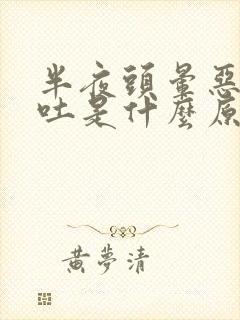 半夜頭暈惡
吐是什麼原
黃夢清